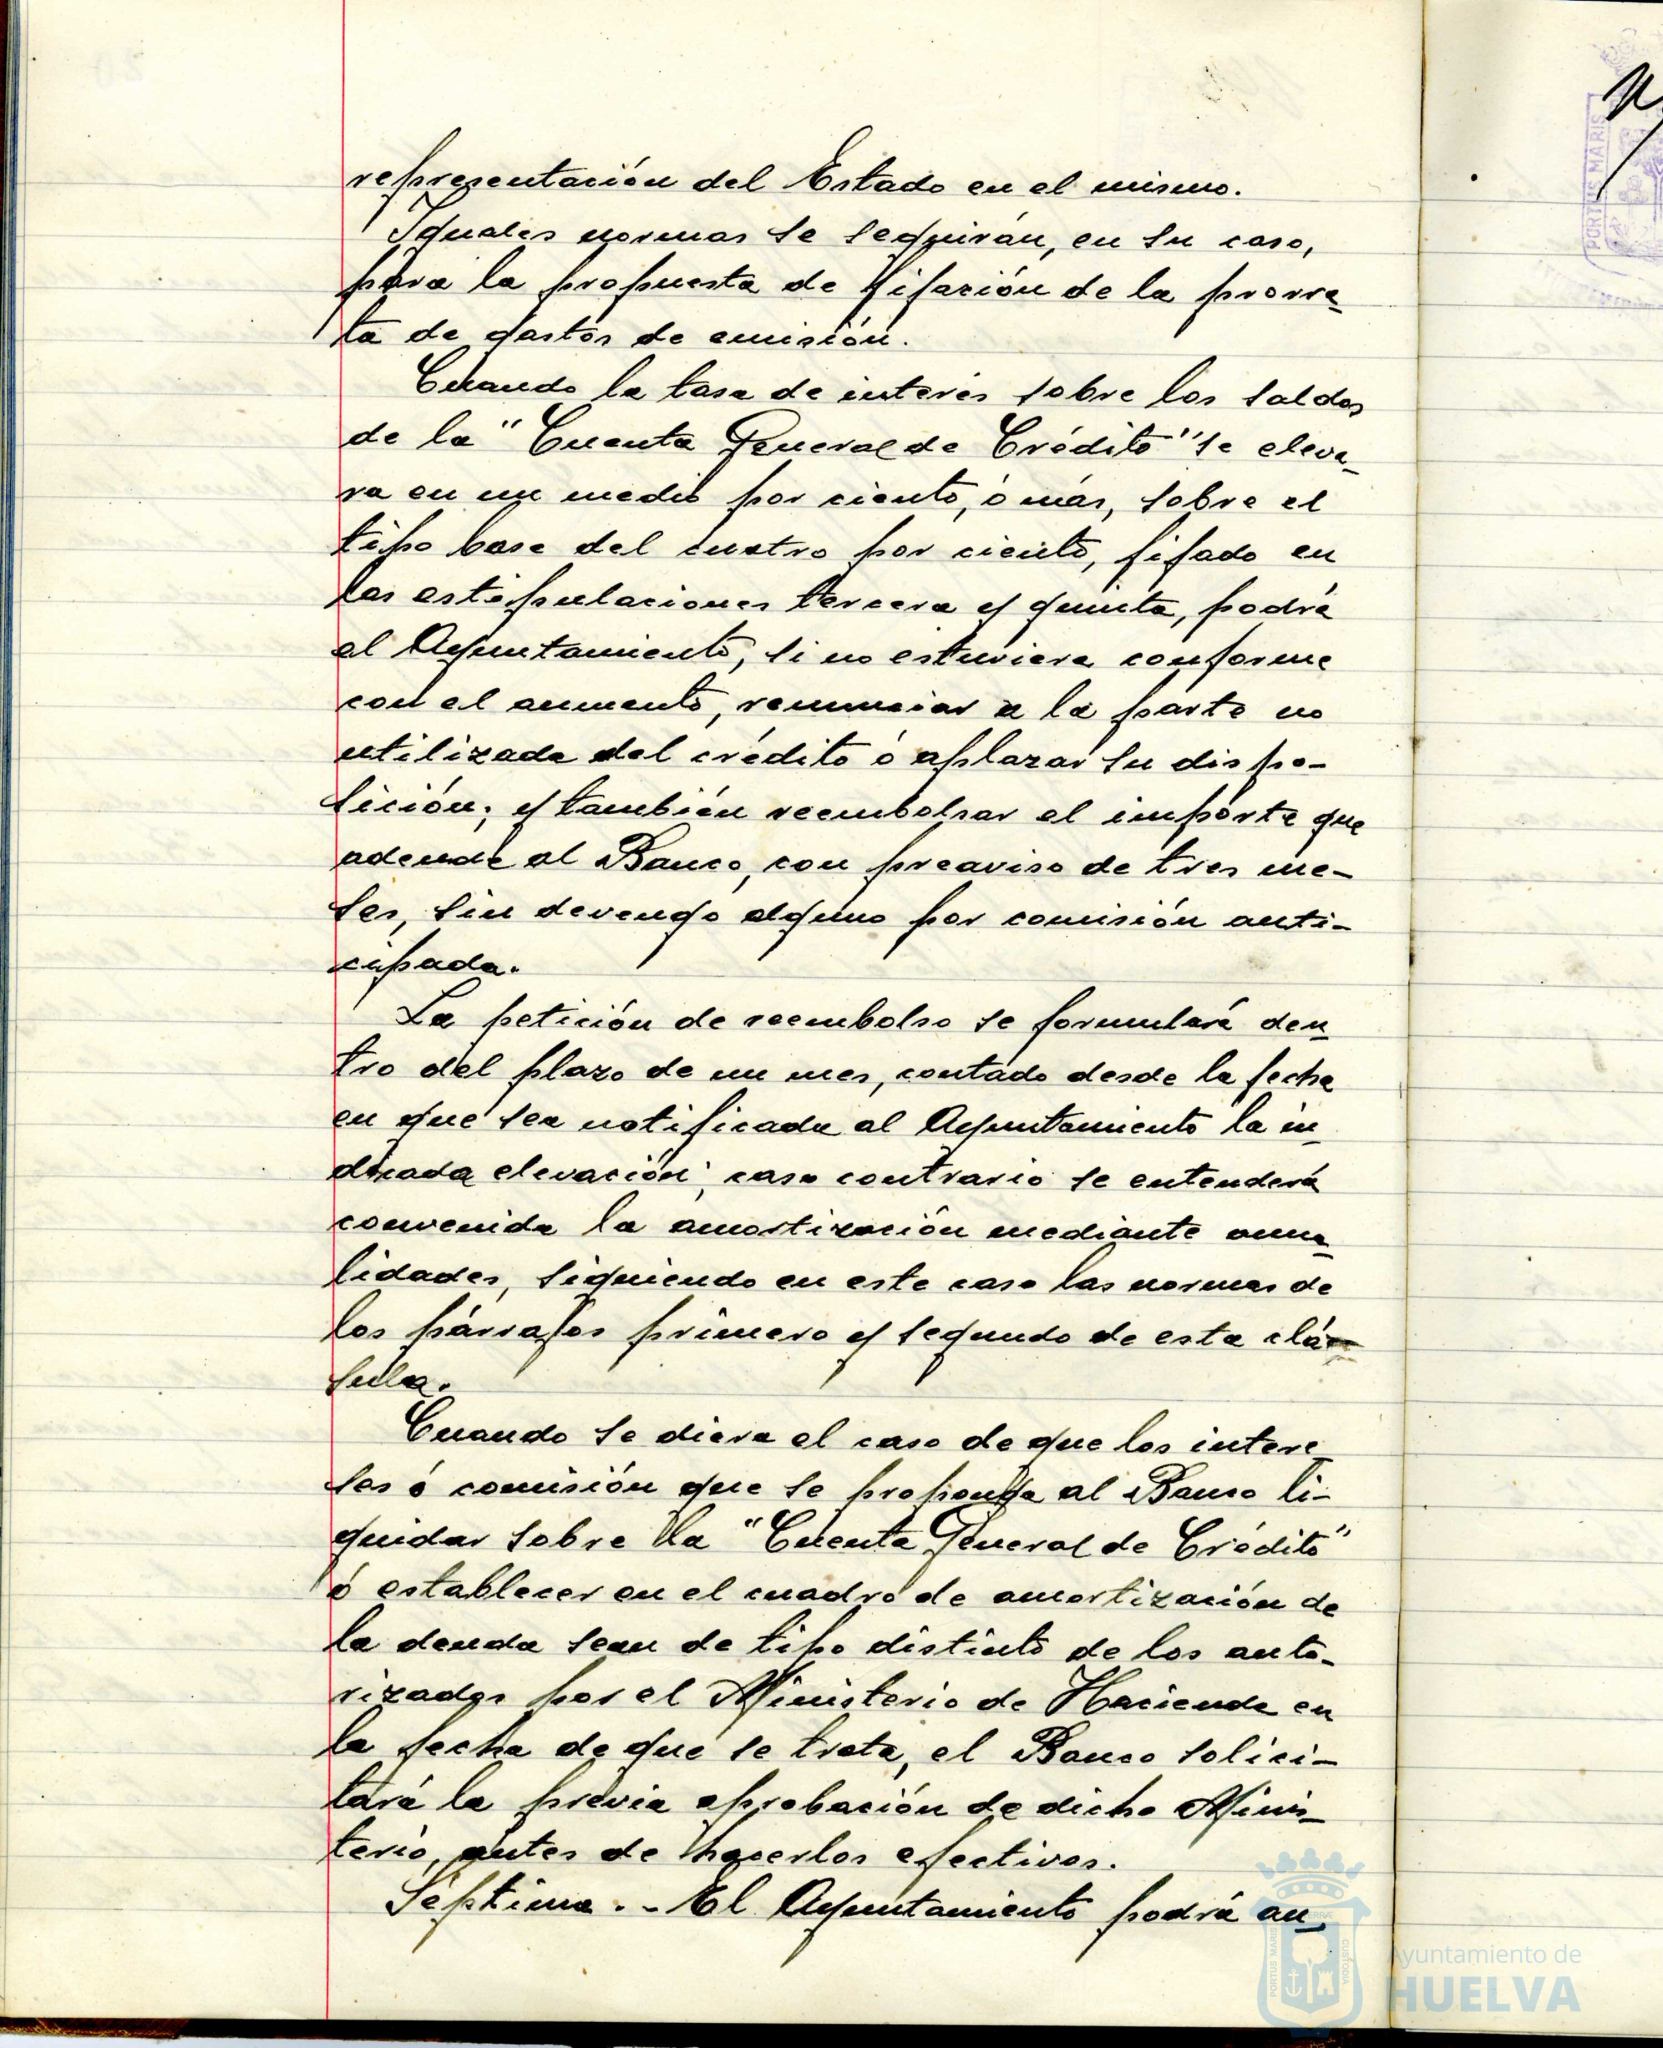 representación del Estado en el mismo.
Iguales normas se seguirán, en su caso,
para la propuesta de fijación de la prorra-
ta de gastos de emisión.
Cuando la tasa de interés sobre los saldos
de la "Cuenta General de Crédito" se eleva-
ra en un medio por ciento, ó más, sobre el
tipo base del cuatro por ciento, fijado en
las estipulaciones tercera y quinta, podrá
el Ayuntamiento, si no estuviera conforme
con el aumento, renunciar a la parte no
utilizada del crédito ó aplazar su dispo-
sición; y también reembolsar el importe que
adeude al Banco, con preaviso de tres me-
ses, sin devengo alguno por comisión anti-
cipada.
La petición de reembolso se formulará den-
tro del plazo de un mes, contado desde la fecha
en que sea notificada al Ayuntamiento la in-
dicada elevación; caso contrario se entenderá
convenida la amortización mediante anua-
lidades, siguiendo en este caso las normas de
los párrafos primero y segundo de esta cláu-
sula.
Cuando se diera el caso de que los intere-
ses ó comisión que se proponga al Banco li-
quidar sobre la "Cuenta General de Crédito"
ó establecer en el cuadro de amortización de
la deuda sean de tipo distinto de los auto-
rizados por el Ministerio de Hacienda en
la fecha de que se trata, el Banco solici-
tará la previa aprobación de dicho Minis-
terio, antes de hacerlos efectivos.
Séptima.- El Ayuntamiento podrá an-
PORTUS MARIS
Ayuntamiento de
HUELVA